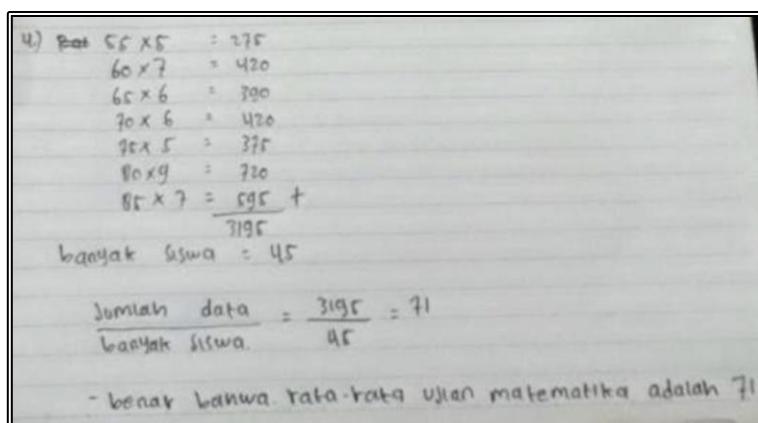 4.) 55 × 5 = 275
60 × 7 = 420
65 × 6 = 390
70 × 6 = 420
75 × 5 = 375
80 × 9 = 720
85 × 7 = 595 +
3195
banyak siswa = 45
Jumlah data / banyak siswa. = 3195 / 45 = 71
- benar bahwa rata-rata ujian matematika adalah 71